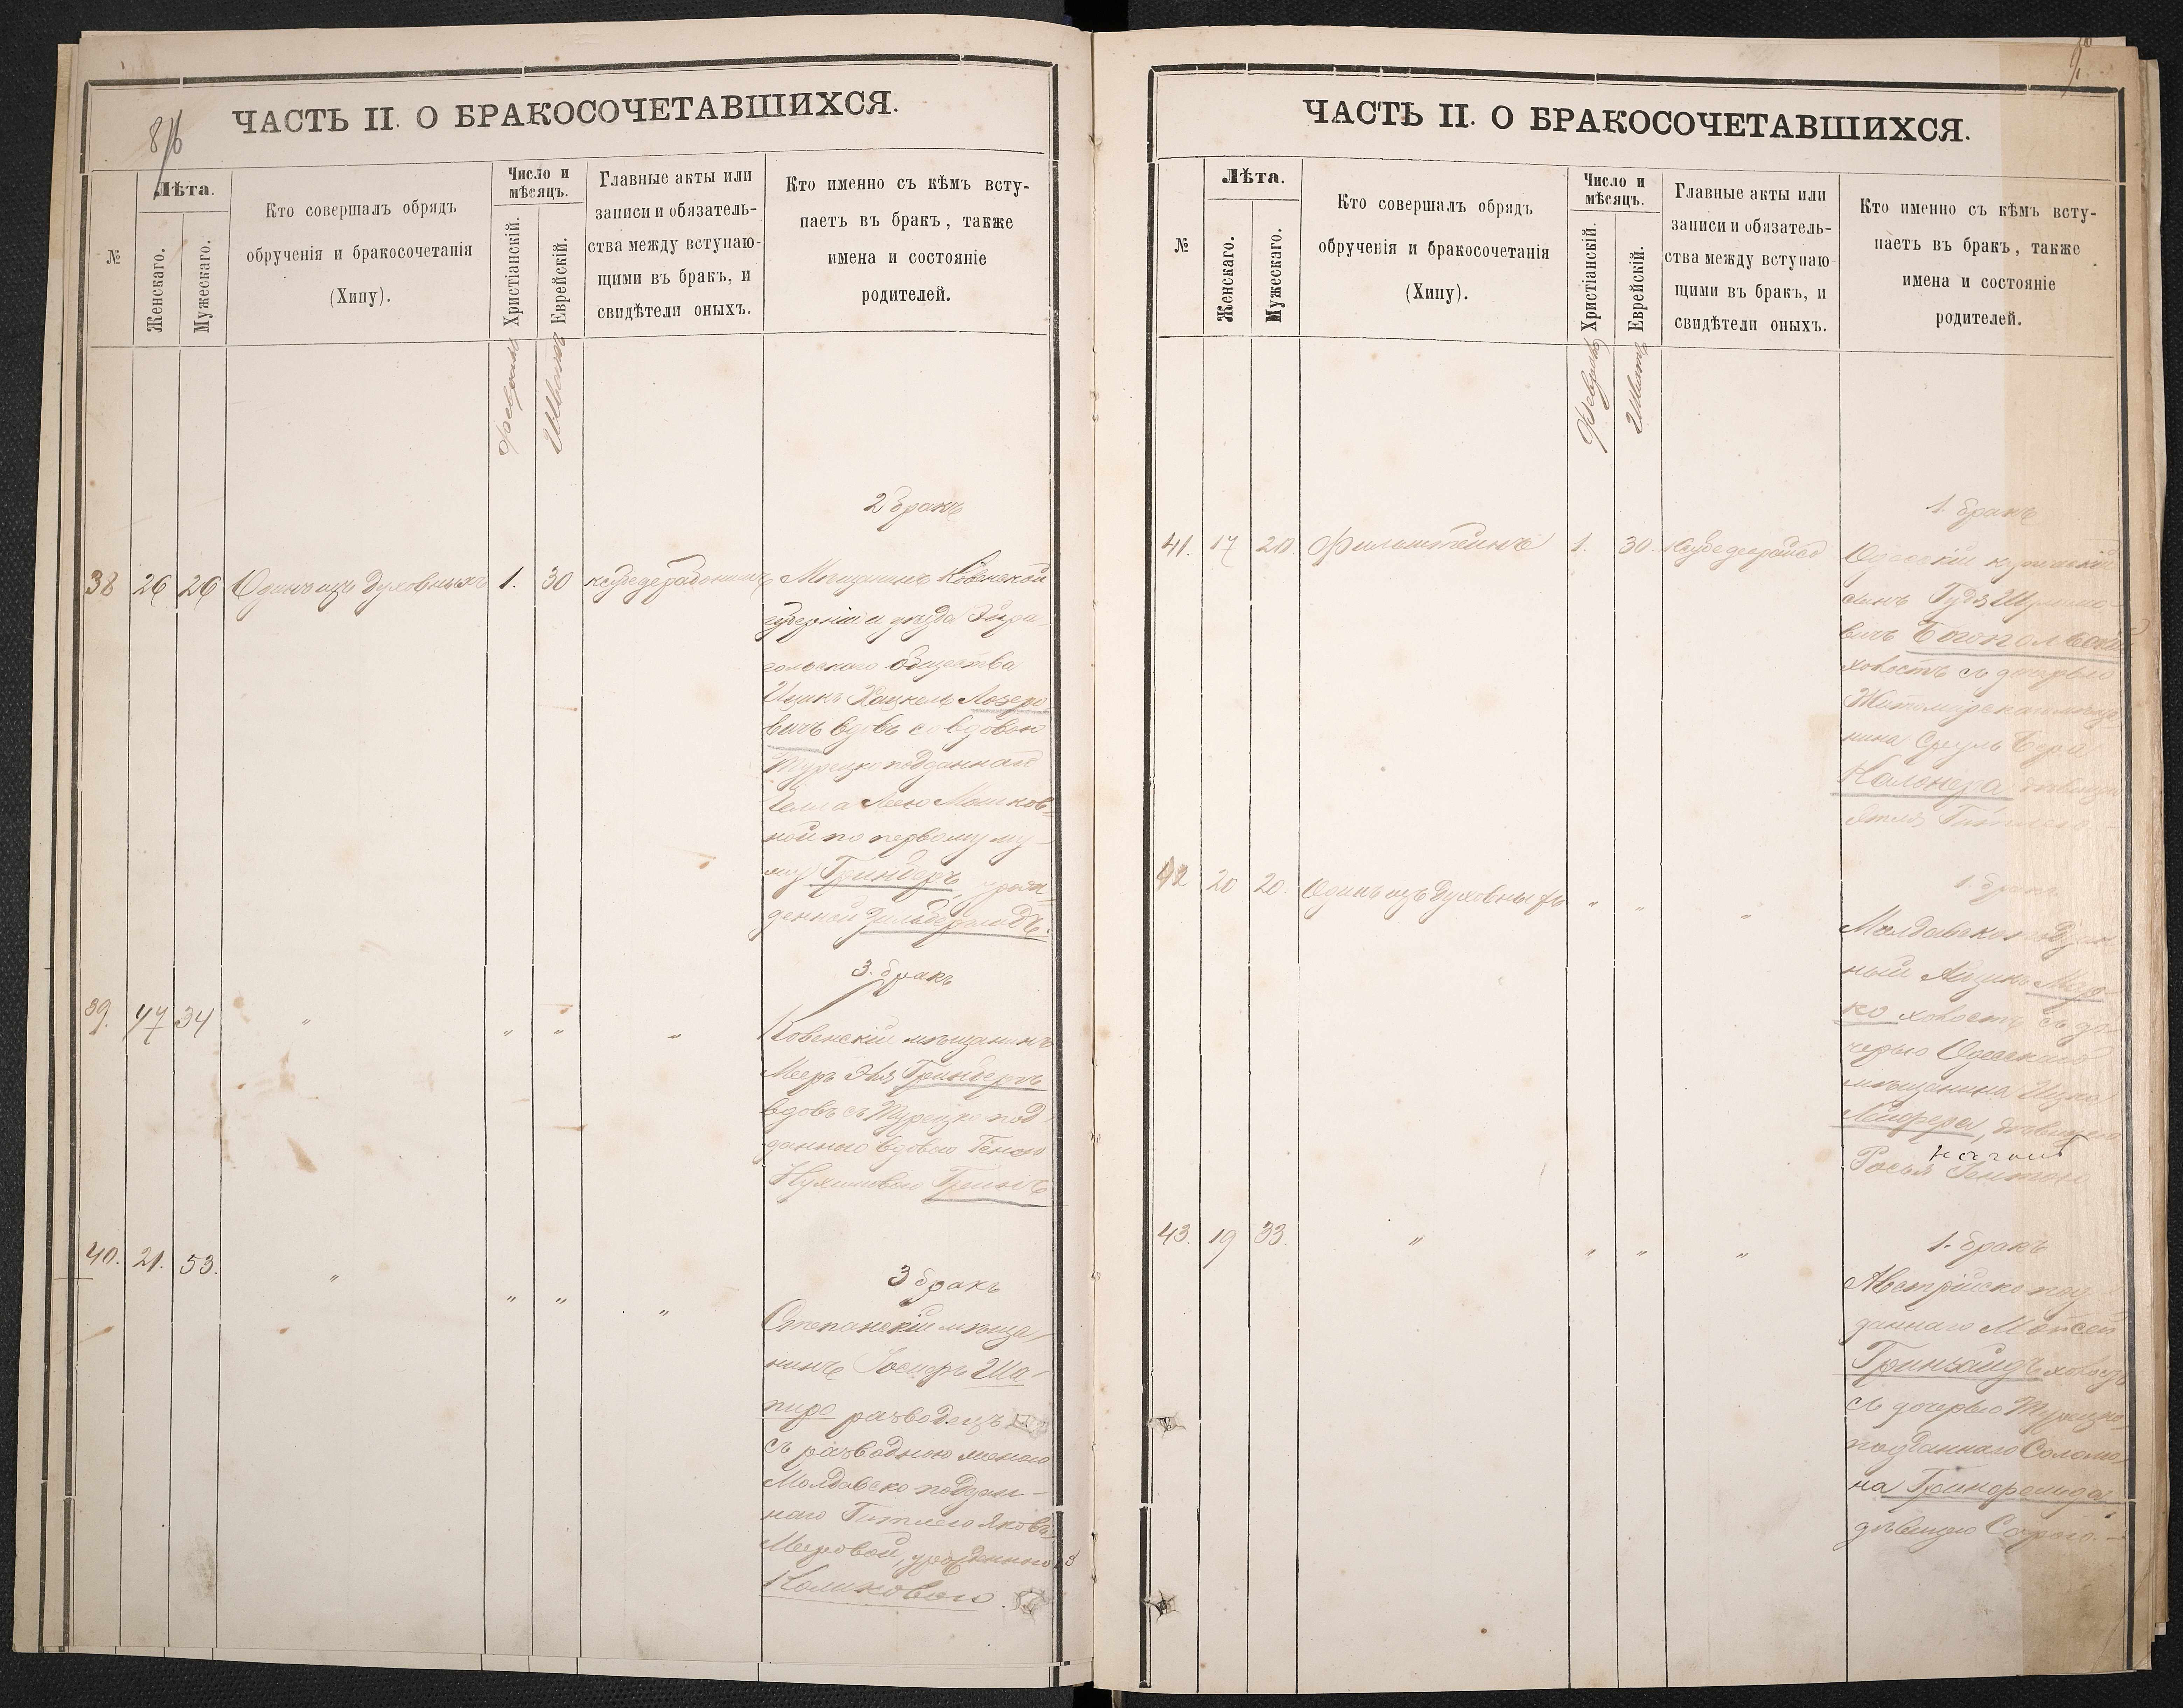 8/16
ЧАСТЬ II. О БРАКОСОЧЕТАВШИХСЯ.
№
Лѣта.
Женскаго.
Мужескаго.
Кто совершалъ обрядъ
обрученія и бракосочетанія
(Хипу).
Число и
мѣсяцъ.
Христіанскій.
Еврейскій.
Главные акты или
записи и обязатель-
ства между вступаю-
щими въ бракъ, и
свидѣтели оныхъ.
Кто именно съ кѣмъ всту-
паетъ въ бракъ, также
имена и состояніе
родителей.
Февраль
Шватъ
2 бракъ
38 26 26 Одинъ изъ Духовныхъ 1. 30 Мѣщанинъ Ковенской
губерніи и уѣзда
гольскаго общества
Ицикъ Хацкель Лозеро-
вичъ вдовъ со вдовою
Турецко подданной
Лею Мошков-
ной по первому му-
жу Гринбергъ, урож-
денной Зильберфальдъ.
3. бракъ
39. 47 34 " " " " Ковенскій мѣщанинъ
Мееръ Эля Гринбергъ
вдовъ съ Турецко под-
данною вдовою Генею
Нухимовою Гринъ
40. 21. 53. " " " "
3 бракъ
Степанскій мѣща-
нинъ Іосифъ Ша-
пиро разводецъ
съ разводною женою
Молдавско поддан-
наго Гитлею Яковъ
Мееровой, урожденною
Коликовою.
9
ЧАСТЬ II. О БРАКОСОЧЕТАВШИХСЯ.
№
Лѣта.
Женскаго.
Мужескаго.
Кто совершалъ обрядъ
обрученія и бракосочетанія
(Хипу).
Число и
мѣсяцъ.
Христіанскій.
Еврейскій.
Главные акты или
записи и обязатель-
ства между вступаю-
щими въ бракъ, и
свидѣтели оныхъ.
Кто именно съ кѣмъ всту-
паетъ въ бракъ, также
имена и состояніе
родителей.
Февраль
Шватъ
1. бракъ
41. 17 20. Фильштейнъ 1. 30. Одесскій купеческій
сынъ Гудя Шулимо-
вичъ Богопольскій
холостъ съ дочерью
Житомирскаго мѣща-
нина Сруль Бера
Кальнера дѣвицею
Гитлею
42 20 20. Одинъ изъ Духовныхъ " " "
1. бракъ
Молдавско поддан-
ный Айзикъ Мар-
ко холостъ съ до-
черью Одесскаго
мѣщанина Ицко
Лейфера, дѣвицею
Росья Гентою
43. 19 33. " " " "
1. бракъ
Австрійско под-
даннаго Мойсей
Гринвайдъ холостъ
съ дочерью Турецко-
подданнаго Соломо-
на Гринфельда
дѣвицею Сорою.-